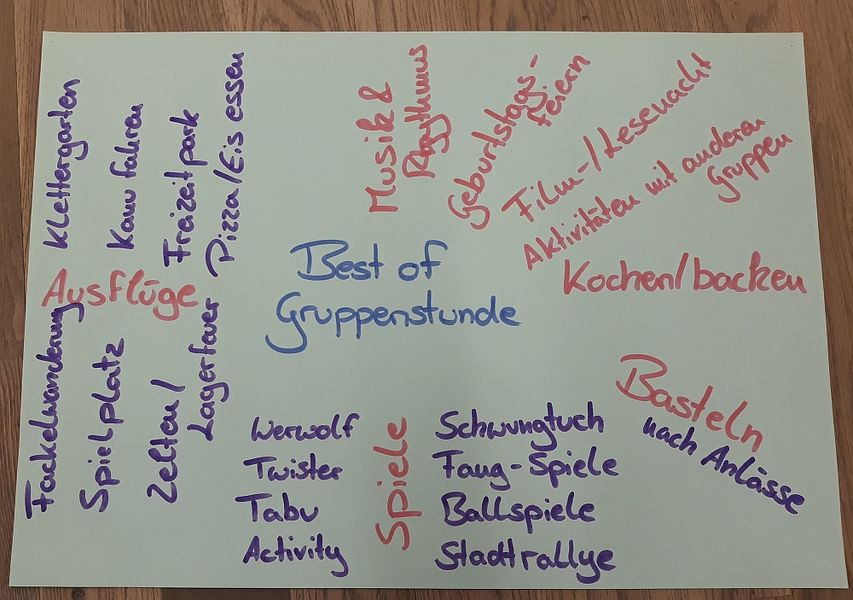 Best of
Gruppenstunde
Ausflüge
Klettergarten
Kanu fahren
Freizeitpark
Pizza/Eis essen
Fackelwanderung
Spielplatz
Zelten/
Lagerfeuer
Musik &
Rhythmus
Geburtstags-
feiern
Film-/Lesenacht
Aktivitäten mit anderen
Gruppen
Kochen/backen
Basteln
nach Anlässe
Spiele
Werwolf
Twister
Tabu
Activity
Schwungtuch
Fang-Spiele
Ballspiele
Stadtrallye